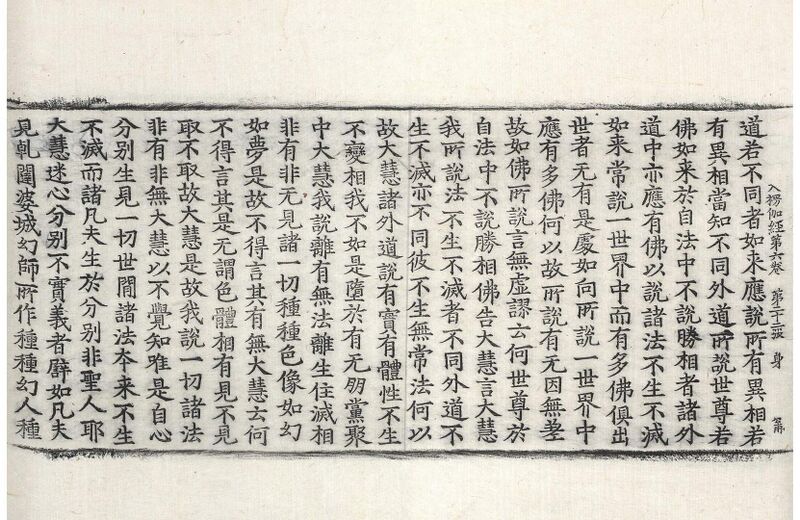 入楞伽經第六卷 第二十二張 身
道若不同者如来應說所有異相若
有異相當知不同外道所說世尊若
佛如来於自法中不說勝相者諸外
道中亦應有佛以說諸法不生不滅
如来常說一世界中而有多佛俱出
世者无有是處如向所說一世界中
應有多佛何以故所說有无因無差
故如佛所說言無虛謬云何世尊於
自法中不說勝相佛告大慧言大慧
我所說法不生不滅者不同外道不
生不滅亦不同彼不生無常法何以
故大慧諸外道說有實有體性不生
不變相我不如是墮於有无朋黨聚
中大慧我說離有無法離生住滅相
非有非无見諸一切種種色像如幻
如夢是故不得言其有無大慧云何
不得言其是无謂色體相有見不見
取不取故大慧是故我說一切諸法
非有非無大慧以不覺知唯是自心
分别生見一切世間諸法本来不生
不滅而諸凡夫生於分别非聖人耶
大慧迷心分别不實義者譬如凡夫
見軋闥婆城幻師所作種種幻人種